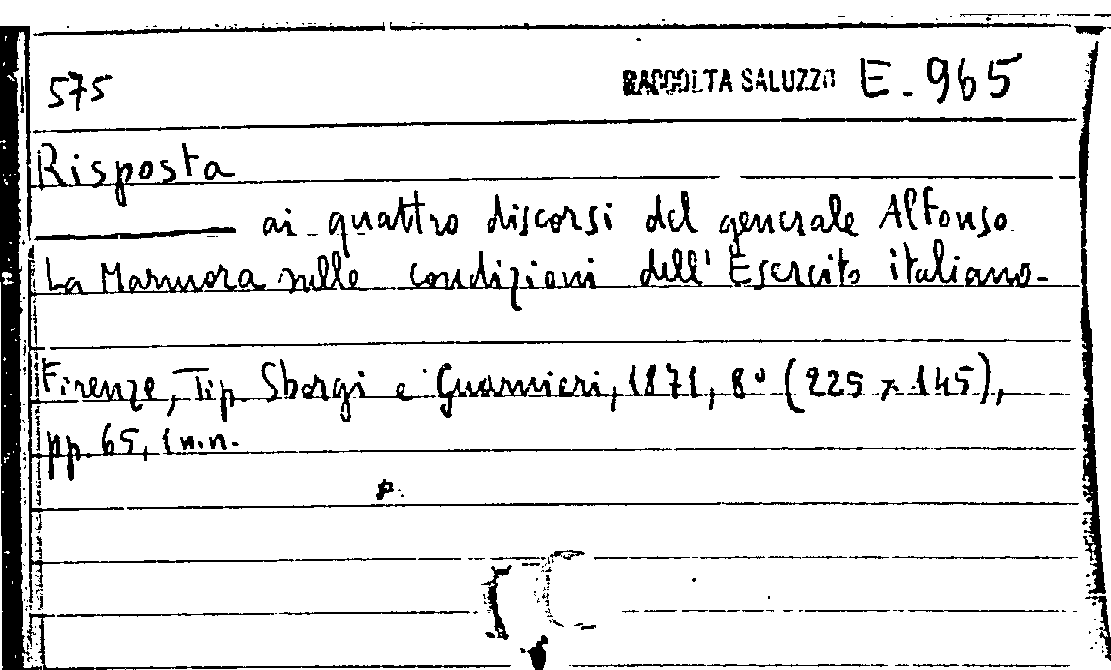 575 RACCOLTA SALUZZO E. 965
Risposta
ai quattro discorsi del generale Alfonso
La Marmora sulle condizioni dell'Esercito italiano.
Firenze, Tip. Sborgi e Guarnieri, 1871, 8° (225 x 145),
pp. 65, 1 n.n.